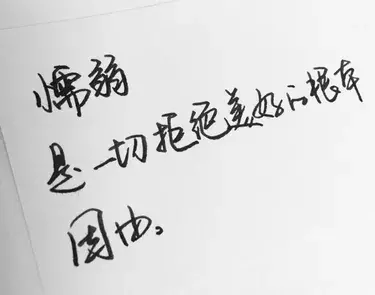 懦弱
是一切拒绝美好的根本
因由。